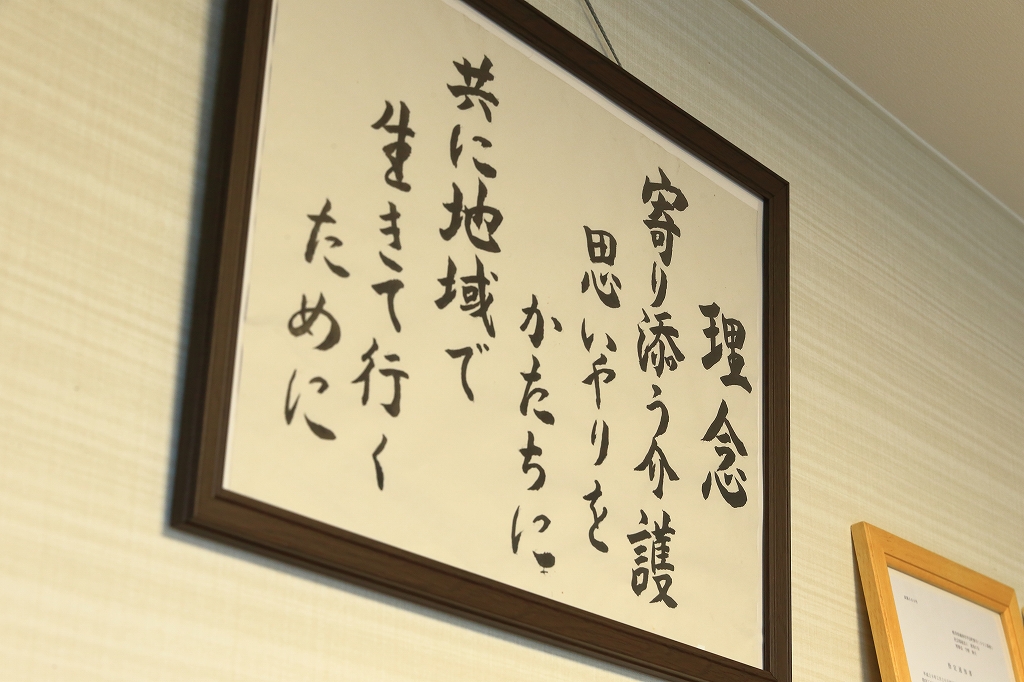 理念
寄り添う介護
思いやりを
かたちに
共に地域で
生きて行く
ために